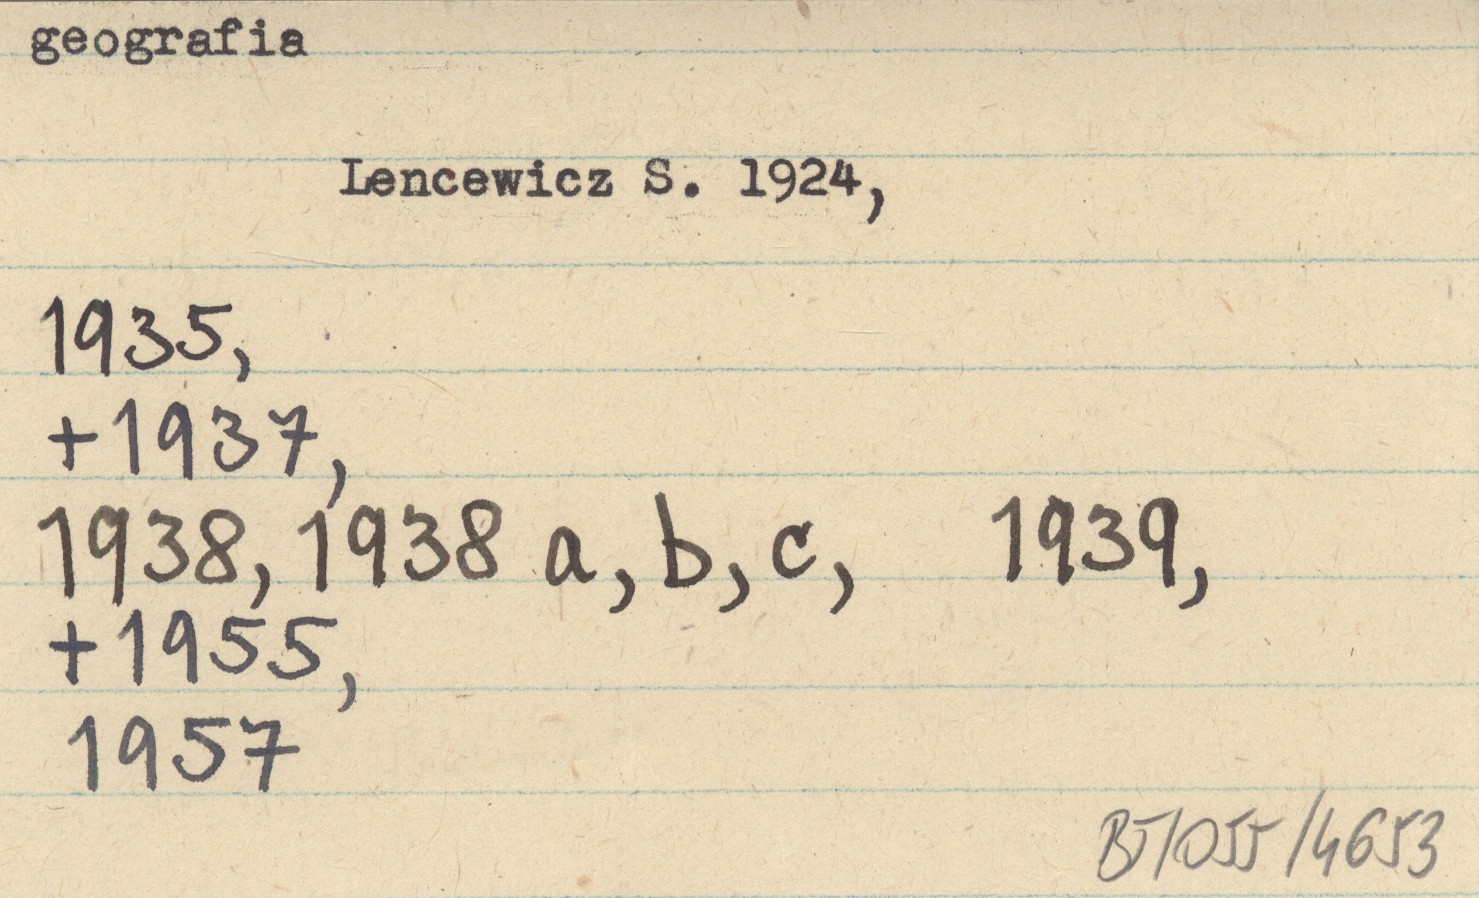 geografia
Lencewicz S. 1924,
1935,
+1937,
1938, 1938 a, b, c, 1939,
+1955,
1957
B5/055/4653